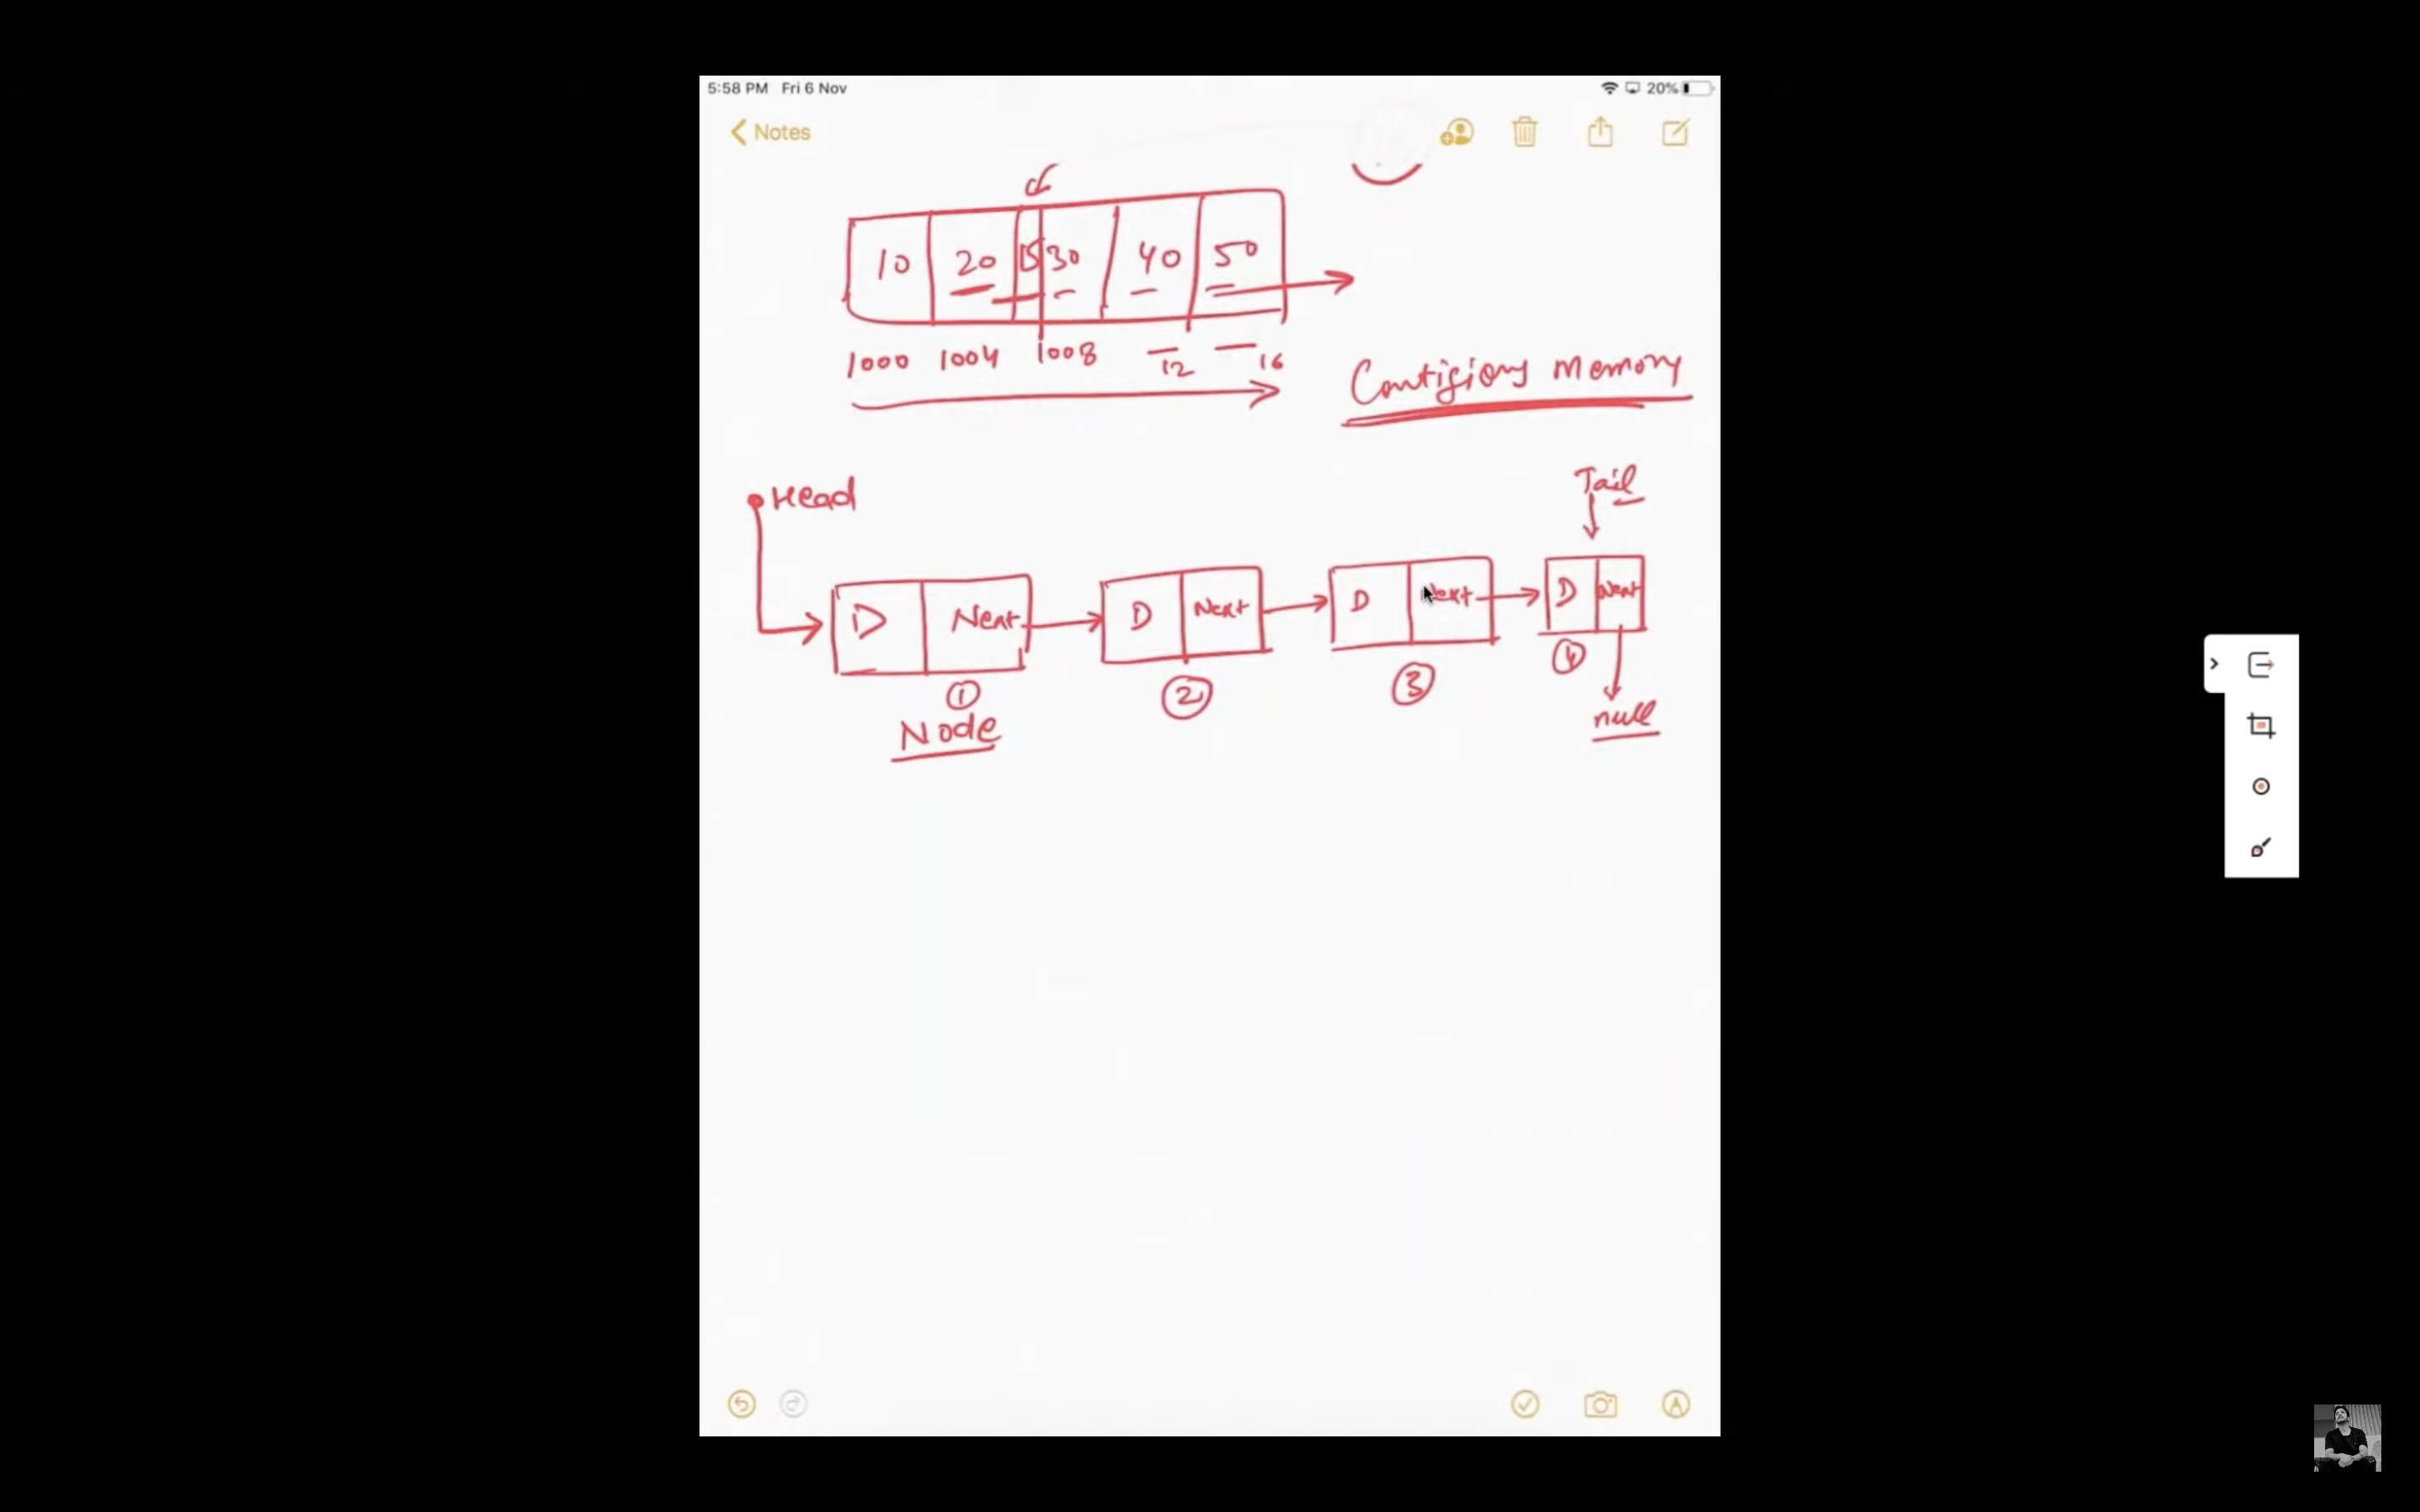 5:58 PM Fri 6 Nov
20%
Notes
10 20 15 30 40 50
1000 1004 1008 12 16
Contigious Memory
Head
Tail
D Next D Next D Next D Next
1 2 3 4
Node
null